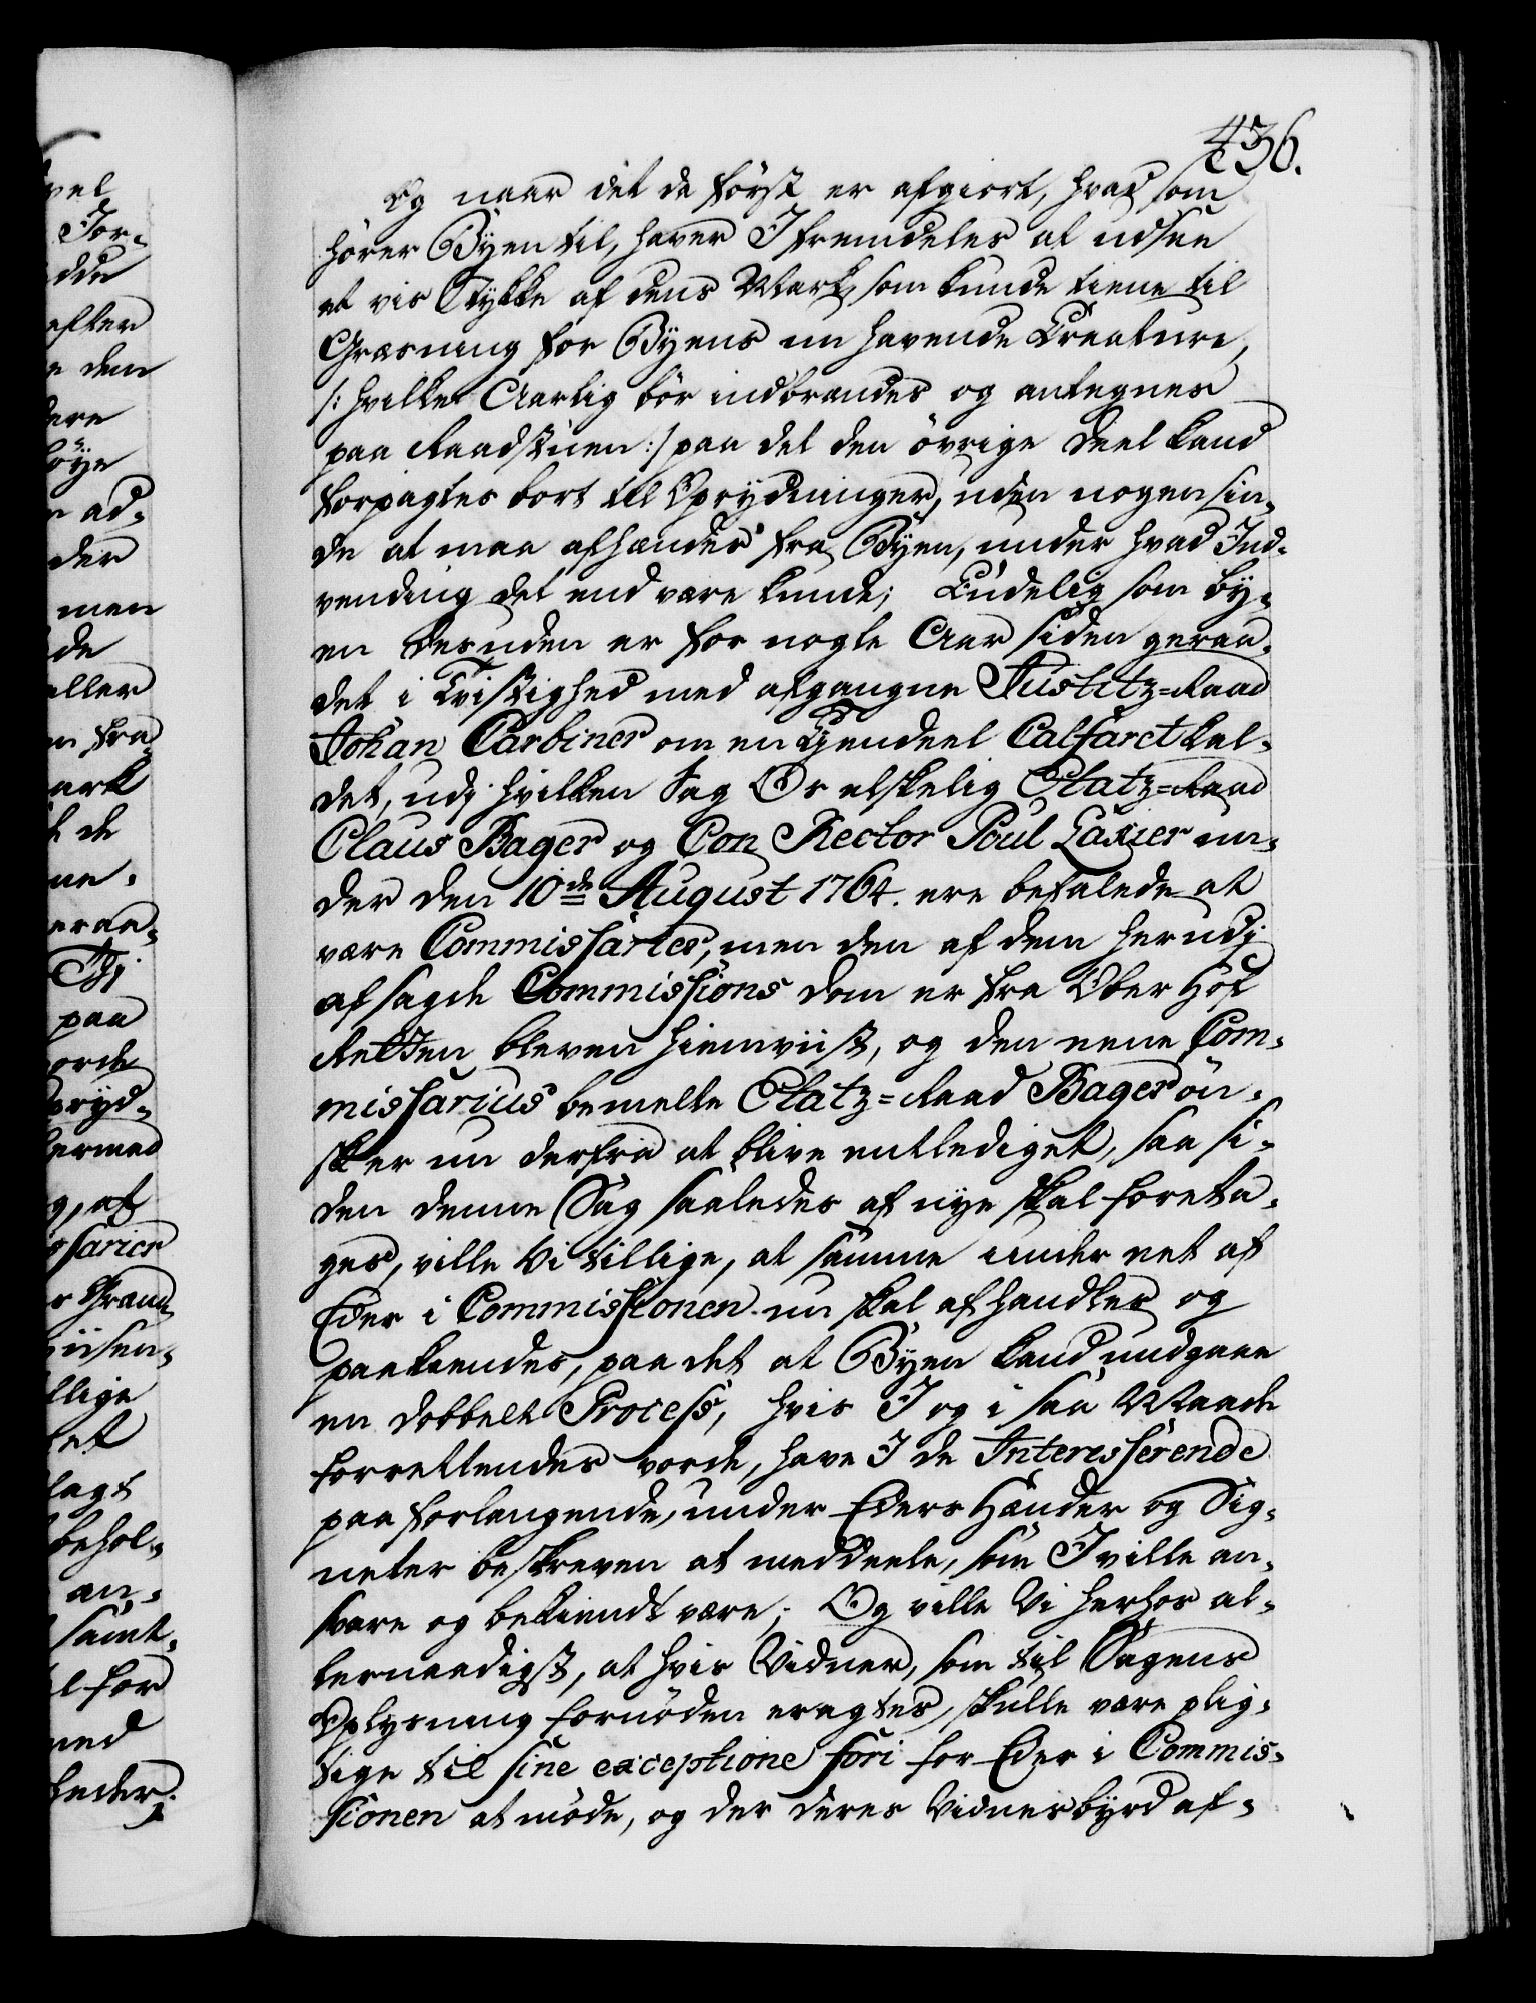 436.
Og naar det da först er afgiort, hvad som
hörer Byen til, haver I fremdeles at udsee
et vis Stykke af dens Mark, som kunde tiene til
Græsning for Byens nu havende Creature,
/: hvilke Aarlig bör indbrændes og antegnes
paa Raadstuen :/ paa det den övrige Deel kand
forpagtes bort til Oprydninger, uden nogensin-
de at maa afhændes fra Byen, under hvad Ind-
vending det end være kunde; Endelig som By-
en desuden er for nogle Aar siden geraa-
det i Tvistighed med afgangne Justitz-Raad
Johan Garbiner om en Eyendeel Calfaret kal-
det, udj hvilken Sag Os elskelig Etatz-Raad
Claus Bager og Con Rector Poul Laxier un-
der den 10de August 1764. ere befalede at
være Commissarier, men den af dem herudj
afsagde Commissions Dom er fra Over Hof
Retten bleven hiemviist, og den eene Com-
missarius bemelte Etatz-Raad Bager ön-
sker nu derfra at blive entlediget, saa si-
den denne Sag saaledes af nye skal foreta-
ges, ville Vi tillige, at samme under eet af
Eder i Commissionen nu skal afhandles og
paakiendes, paa det at Byen kand undgaae
en dobbelt Process, hvis I og i saa Maade
forrettendes vorde, have I de Interesserende
paa forlangende, under Eders Hænder og Sig-
neter beskreven at meddeele, som I ville an-
svare og bekiendt være; Og ville Vi herhos al-
lernaadigst, at hvis Vidner, som til Sagens
Oplysning fornöden eragtes, skulle være plig-
tige til sine exceptione fori for Eder i Commis-
sionen at möde, og der deres Vidnesbyrd af-